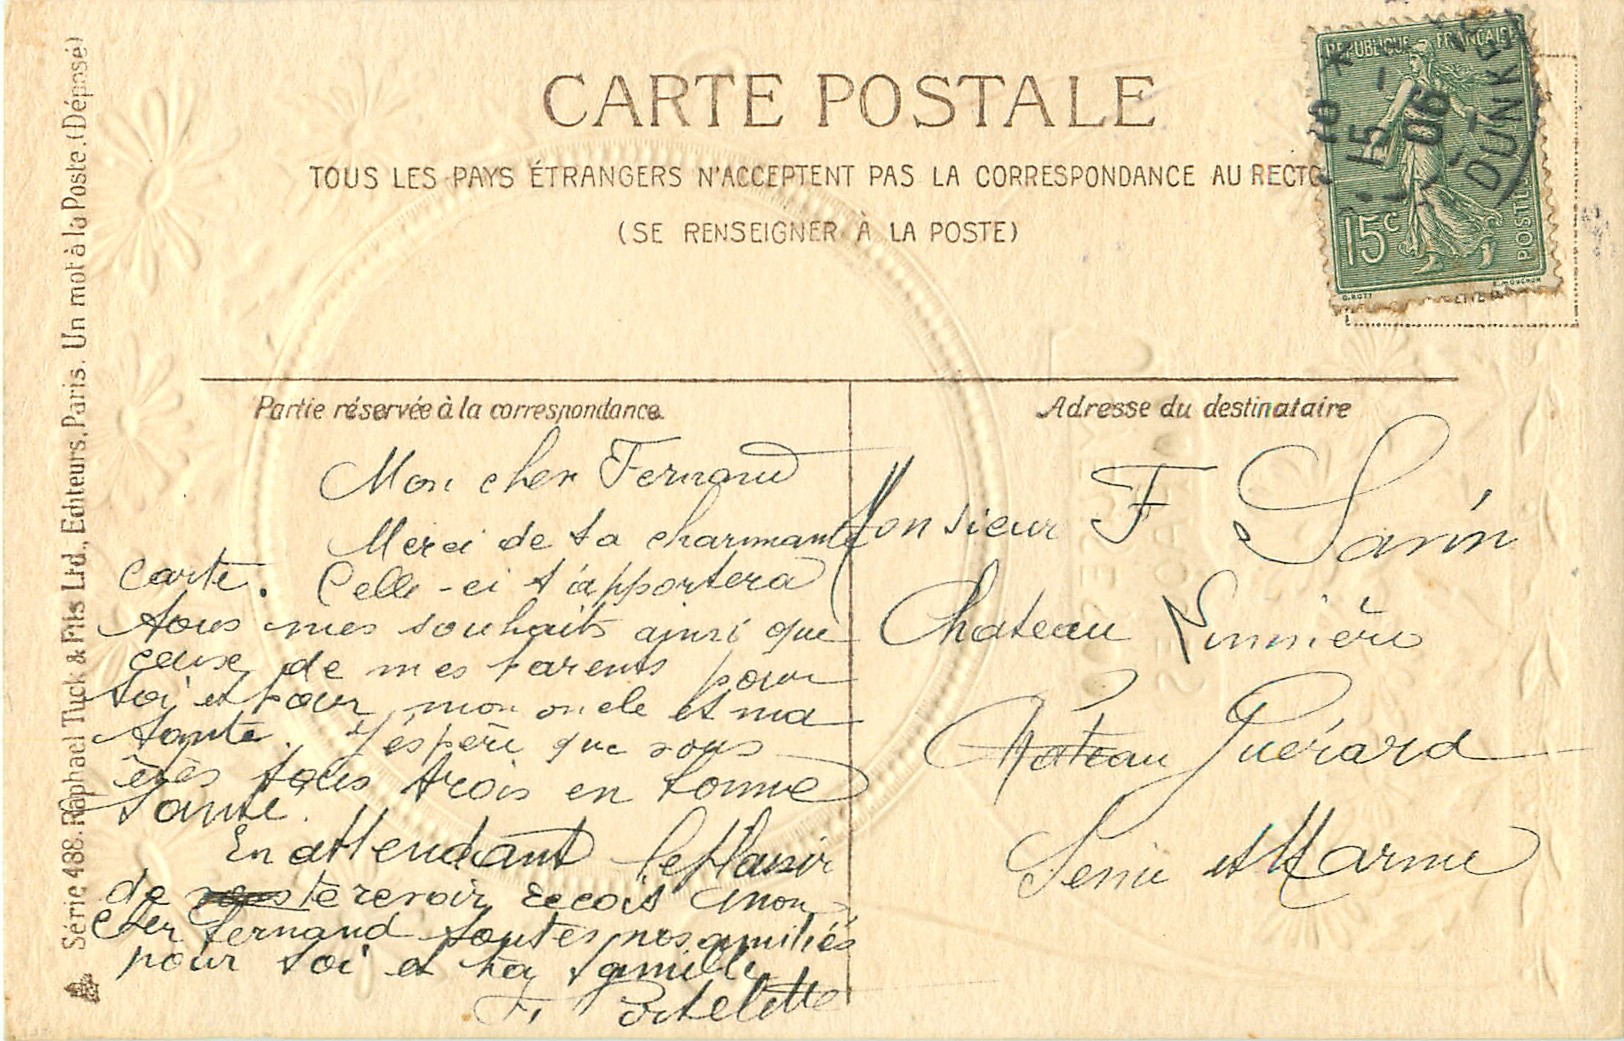 CARTE POSTALE
TOUS LES PAYS ÉTRANGERS N'ACCEPTENT PAS LA CORRESPONDANCE AU RECTO
(SE RENSEIGNER À LA POSTE)
RÉPUBLIQUE FRANÇAISE
15c
POSTES
O. ROTY
E. MOUCHON
10 *
15 -
06
DUNKE
Série 488. Raphael Tuck & Fils Ltd., Editeurs, Paris. Un mot à la Poste. (Déposé)
Partie réservée à la correspondance.
Mon cher Fernand
Merci de ta charmante
carte. Celle-ci t'apportera
tous mes souhaits ainsi que
ceux de mes parents pour
toi et pour mon oncle et ma
tante. J'espère que vous
êtes tous trois en bonne
santé.
En attendant le plaisir
de te revoir, reçois mon
cher Fernand toutes nos amitiés
pour toi et ta famille
F. Portelette
Adresse du destinataire
Monsieur F Sarin
Chateau
Chateau Guérard
Seine et Marne